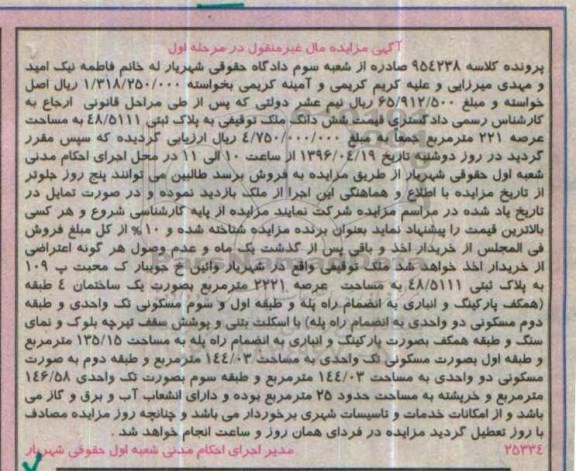 آگهی مزایده مال غیرمنقول در مرحله اول
پرونده کلاسه ۹۵٤۲۳۸ صادره از شعبه سوم دادگاه حقوقی شهریار له خانم فاطمه نیک امید
و مهدی میرزایی و علیه کریم کریمی و آمینه کریمی بخواسته ۱/۳۱۸/۲۵۰/۰۰۰ ریال اصل
خواسته و مبلغ ۶۵/۹۱۲/۵۰۰ ریال نیم عشر دولتی که پس از طی مراحل قانونی ارجاع به
کارشناس رسمی دادگستری قیمت شش دانگ ملک توقیفی به پلاک ثبتی ۴۸/۵۱۱۱ به مساحت
عرصه ۲۲۱ مترمربع جمعاً به مبلغ ٤/۷۵۰/۰۰۰/۰۰۰ ریال ارزیابی گردیده که سپس مقرر
گردید در روز دوشنبه تاریخ ۱۳۹۶/۰٤/۱۹ از ساعت ۱۰ الی ۱۱ در محل اجرای احکام مدنی
شعبه اول حقوقی شهریار از طریق مزایده به فروش برسد طالبین می توانند پنج روز جلوتر
از تاریخ مزایده با اطلاع و هماهنگی این اجرا از ملک بازدید نموده و در صورت تمایل در
تاریخ یاد شده در مراسم مزایده شرکت نمایند مزایده از پایه کارشناسی شروع و هر کسی
بالاترین قیمت را پیشنهاد نماید بعنوان برنده مزایده شناخته شده و ۱۰% از کل مبلغ فروش
فی المجلس از خریدار اخذ و باقی پس از گذشت یک ماه و عدم وصول هر گونه اعتراضی
از خریدار اخذ خواهد شد ملک توقیفی واقع در شهریار وائین خ جویبار ک محبت پ ۱۰۹
به پلاک ثبتی ۴۸/۵۱۱۱ به مساحت عرصه ۲۲۲۱ مترمربع بصورت یک ساختمان ٤ طبقه
(همکف پارکینگ و انباری به انضمام راه پله و طبقه اول و سوم مسکونی تک واحدی و طبقه
دوم مسکونی دو واحدی به انضمام راه پله) با اسکلت بتنی و پوشش سقف تیرچه بلوک و نمای
سنگ و طبقه همکف بصورت پارکینگ و انباری به انضمام راه پله به مساحت ۱۳۵/۱۵ مترمربع
و طبقه اول بصورت مسکونی تک واحدی به مساحت ۱٤٤/۰۳ مترمربع و طبقه دوم به صورت
مسکونی دو واحدی به مساحت ۱٤٤/۰۳ مترمربع و طبقه سوم بصورت تک واحدی ۱۴۶/۵۸
مترمربع و خرپشته به مساحت حدود ۲۵ مترمربع بوده و دارای انشعاب آب و برق و گاز می
باشد و از امکانات خدمات و تاسیسات شهری برخوردار می باشد و چنانچه روز مزایده مصادف
با روز تعطیل گردید مزایده در فردای همان روز و ساعت انجام خواهد شد .
۲۵۳۳٤ مدیر اجرای احکام مدنی شعبه اول حقوقی شهریار